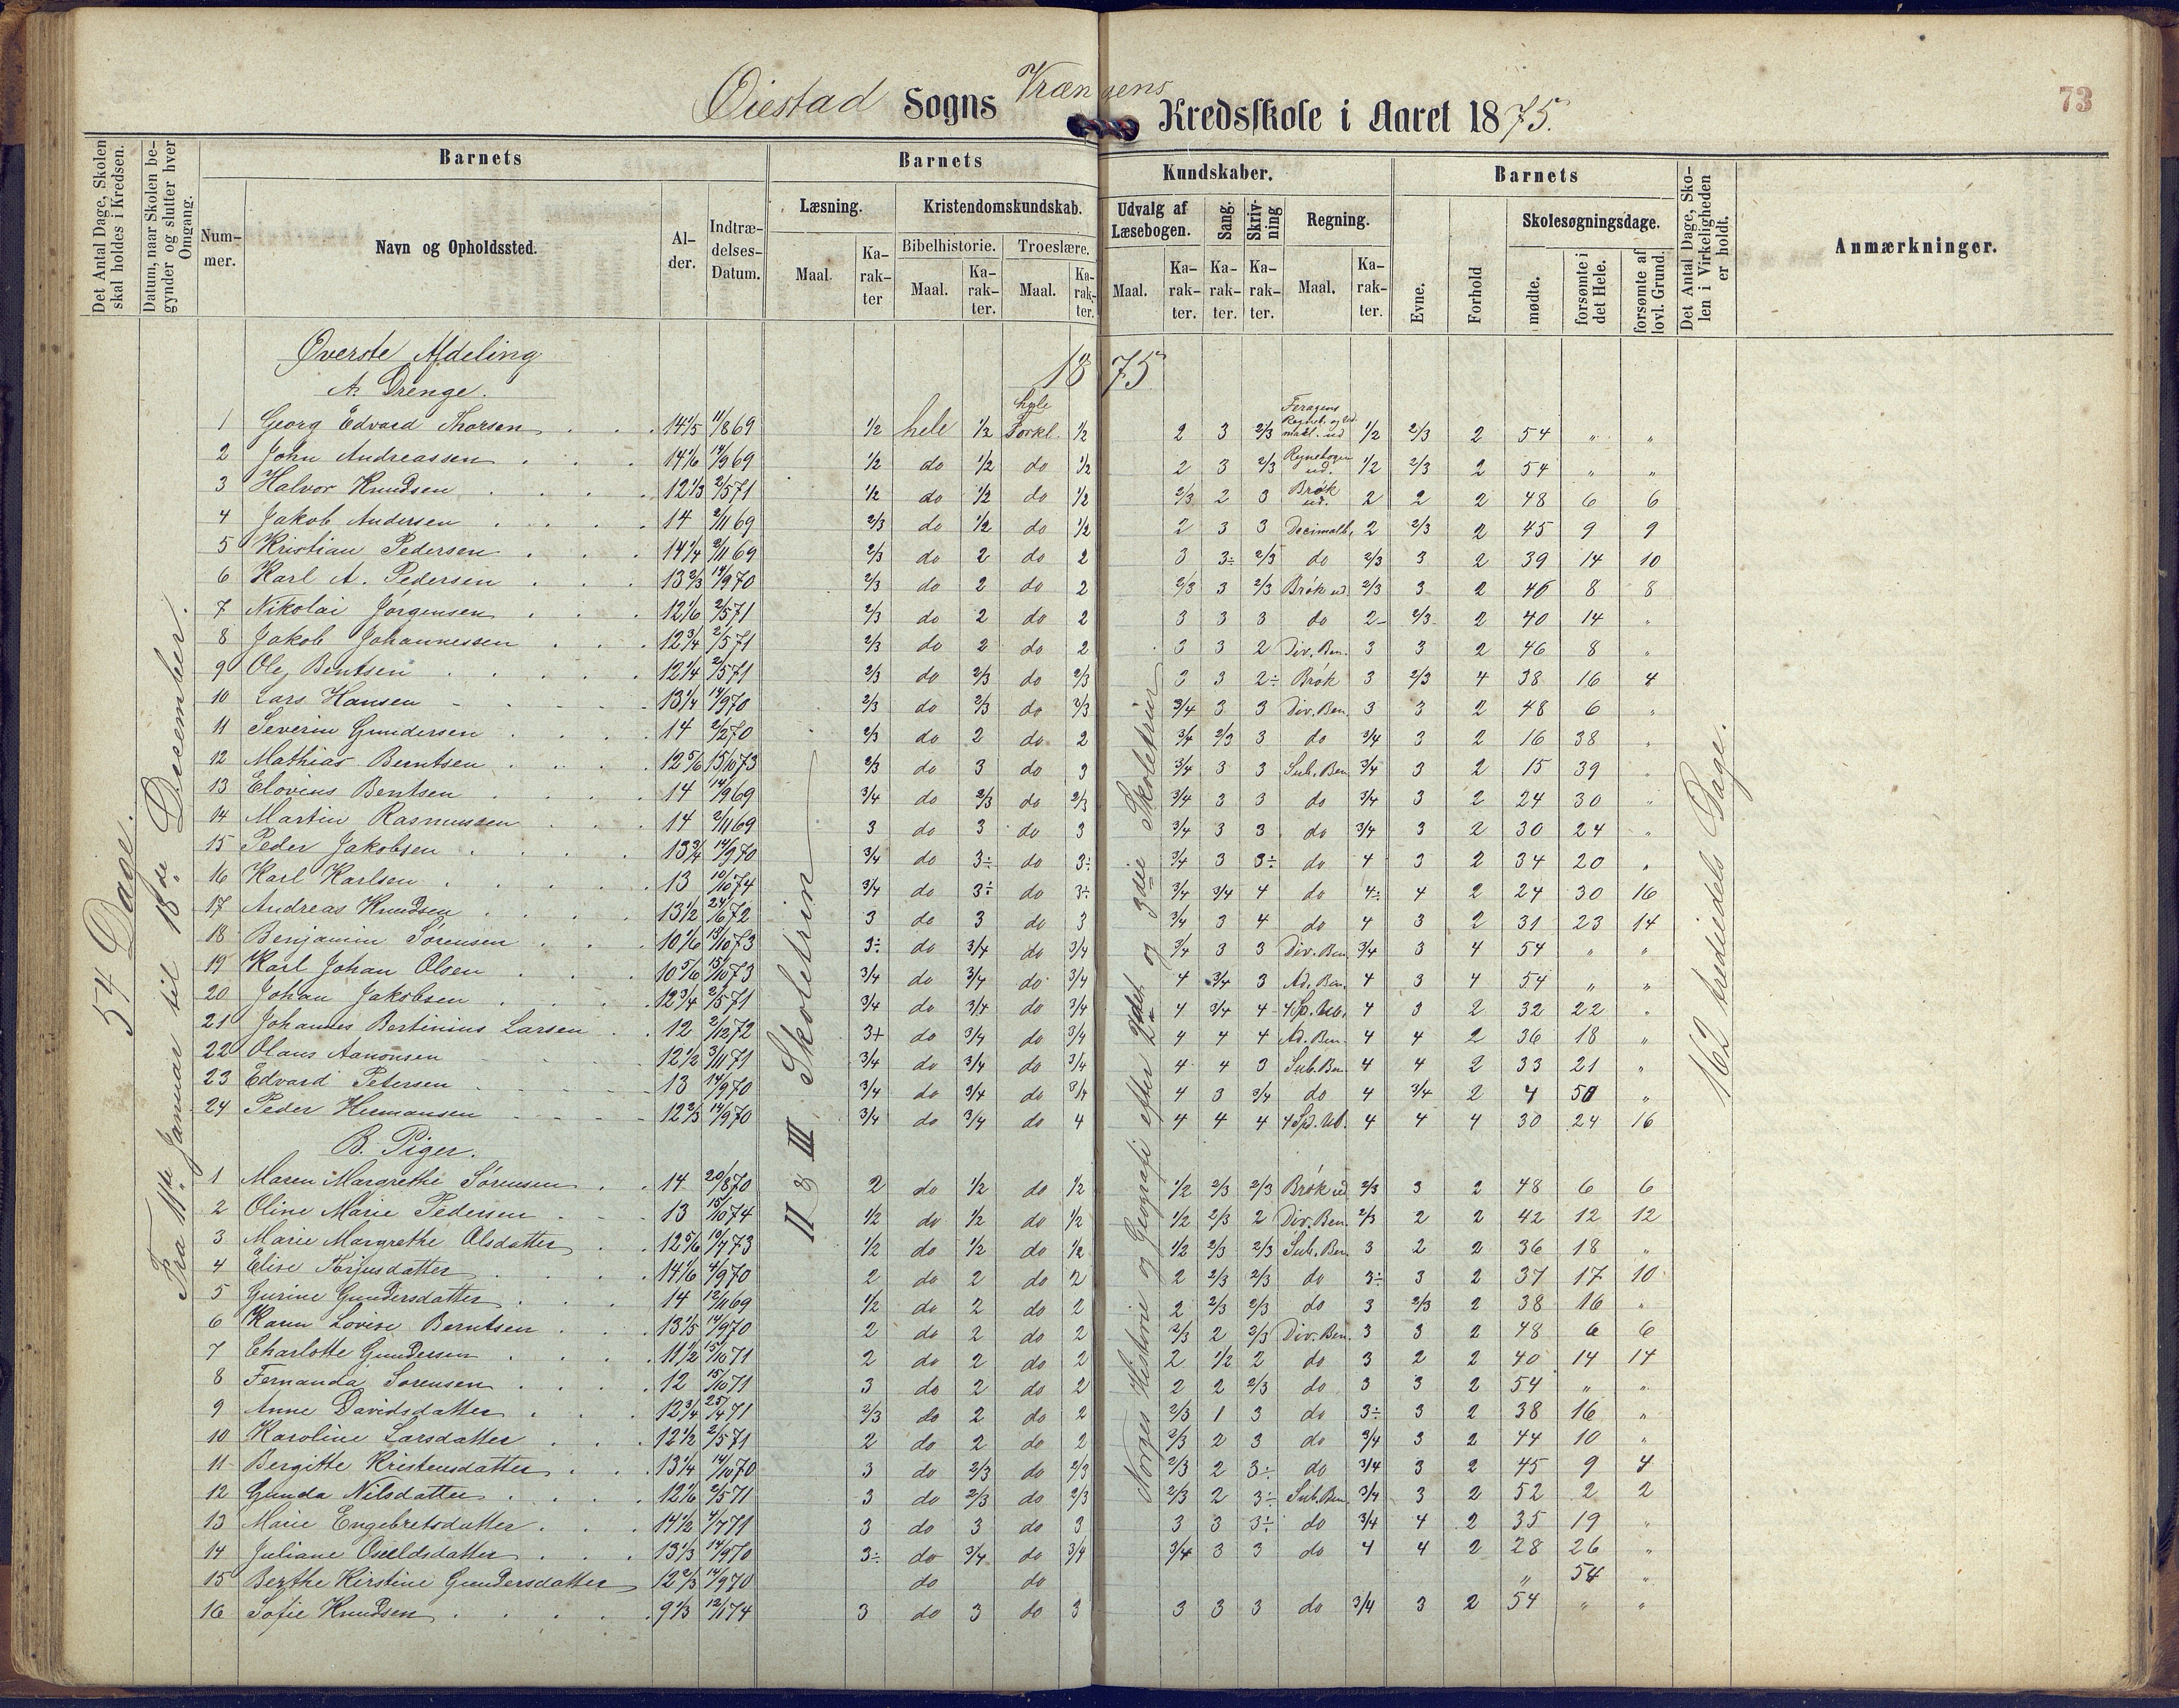 Øiestad Sogns Vrængens Kredsskole i Aaret 1875.
73
Det Antal Dage, Skolen skal holdes i Kredsen.
Datum, naar Skolen begynder og slutter hver Omgang.
Barnets
Barnets
Kundskaber.
Barnets
Det Antal Dage, Skolen i Virkeligheden er holdt.
Anmærkninger.
Nummer.
Navn og Opholdssted.
Alder.
Indtrædelses-Datum.
Læsning.
Kristendomskundskab.
Udvalg af Læsebogen.
Sang.
Skrivning
Regning.
Evne.
Forhold
Skolesøgningsdage.
Bibelhistorie.
Troeslære.
Maal.
Karakter
Maal.
Karakter.
Maal.
Karakter.
Maal.
Karakter.
Karakter.
Karakter.
Maal.
Karakter.
mødte.
forsømte i det Hele.
forsømte af lovl. Grund.
54 Dage.
Fra 11te Januar til 18de December.
II & III Skoletrin
Norges Historie og Geografi efter 2det og 3die Skoletrin
162 trediedels Dage.
Øverste Afdeling
1875
A. Drenge.
1 Georg Edvard Thorsen 14 1/5 11/8 69 1/2 hele 1/2 hele Forkl. 1/2 2 3 2/3 Regneb. og ud 1/2 2/3 2 54 " "
2 John Andreassen 14 1/6 14/9 69 1/2 do 1/2 do 1/2 2 3 2/3 Regnebogen ud. 1/2 2/3 2 54 " "
3 Halvor Knudsen 12 1/3 2/5 71 1/2 do 1/2 do 1/2 2/3 2 3 Brøk ud. 2 2 2 48 6 6
4 Jakob Andersen 14 2/11 69 2/3 do 1/2 do 1/2 2 3 3 Decimalb. 2 2/3 2 45 9 9
5 Kristian Pedersen 14 1/4 2/11 69 2/3 do 2 do 2 3 3÷ 2/3 do 2/3 3 2 39 14 10
6 Karl A. Pedersen 13 2/3 14/9 70 2/3 do 2 do 2 2/3 3 2/3 Brøk ud 2/3 3 2 46 8 8
7 Nikolai Jørgensen 12 1/6 2/5 71 2/3 do 2 do 2 3 3 3 do 2- 2/3 2 40 14 "
8 Jakob Johannessen 12 3/4 2/5 71 2/3 do 2 do 2 3 3 2 Div. Ben. 3 3 2 46 8 "
9 Ole Bentsen 12 1/4 2/5 71 2/3 do 2/3 do 2/3 3 3 2÷ Brøk 3 2/3 4 38 16 4
10 Lars Hansen 13 1/4 14/9 70 2/3 do 2/3 do 2/3 3/4 3 3 Div. Ben. 3 3 2 48 6 "
11 Severin Gundersen 14 2/2 70 2/3 do 2 do 2 3/4 2/3 3 do 3/4 3 2 16 38 "
12 Mathias Berntsen 12 5/6 15/10 73 2/3 do 3 do 3 3/4 3 3 Sub. Ben 3/4 3 2 15 39 "
13 Elovius Bentsen 14 14/9 69 3/4 do 2/3 do 2/3 3/4 3 3 do 3/4 3 2 24 30 "
14 Martin Rasmussen 14 2/11 69 3 do 3 do 3 3/4 3 3 do 3/4 3 2 30 24 "
15 Peder Jakobsen 13 3/4 14/9 70 3/4 do 3÷ do 3÷ 3/4 3 3÷ do 4 3 2 34 20 "
16 Karl Karlsen 13 10/10 74 3/4 do 3÷ do 3÷ 3/4 3/4 4 do 4÷ 4 2 24 30 16
17 Andreas Knudsen 13 1/2 24/6 72 3 do 3 do 3 3/4 3 4 do 4 3 2 31 23 14
18 Benjamin Sørensen 10 1/6 15/10 73 3÷ do 3/4 do 3/4 3/4 3 3 Div. Ben 3/4 3 4 54 " "
19 Karl Johan Olsen 10 5/6 15/10 73 3/4 do 3/4 do 3/4 4 3/4 3 Ad. Ben. 4 3 4 54 " "
20 Johan Jakobsen 12 3/4 2/5 71 3/4 do 3/4 do 3/4 4 3/4 4 4 Sp. Ub. 4 3 2 32 22 "
21 Johannes Bertinius Larsen 12 2/12 72 3+ do 3/4 do 3/4 4 4 4 Ad. Ben. 4 4 2 36 18 "
22 Olaus Aanonsen 12 1/2 3/11 71 3/4 do 3/4 do 3/4 4 4 3 Sub. Ben 4 4 2 33 21 "
23 Edvard Petersen 13 14/9 70 3/4 do 3/4 do 3/4 4 3 3/4 do 4 3/4 2 4 50 "
24 Peder Hermansen 12 2/3 14/9 70 3/4 do 3/4 do 4 4 4 4 4 Sp. Ub. 4 4 4 30 24 16
B. Piger.
1 Maren Margrethe Sørensen 14 20/8 70 2 do 1/2 do 1/2 1/2 2/3 2/3 Brøk ud 2/3 3 2 48 6 6
2 Oline Marie Pedersen 13 15/10 74 1/2 do 1/2 do 1/2 1/2 2/3 2 Div. Ben. 2/3 2 2 42 12 12
3 Marie Margrethe Olsdatter 12 5/6 10/7 73 1/2 do 1/2 do 1/2 1/2 2/3 2/3 Sub. Ben. 3 2 2 36 18 "
4 Elise Terjusdatter 14 1/6 4/9 70 2 do 2 do 2 2 2/3 2/3 do 3÷ 3 2 37 17 10
5 Gurine Gundersdatter 14 12/11 69 1/2 do 2 do 2 2 2/3 2/3 do 3 2/3 2 38 16 "
6 Karen Lovise Berntsen 13 1/5 14/9 70 2 do 2 do 2 2/3 2 2/3 Div. Ben. 3 3 2 48 6 6
7 Charlotte Gundersen 11 1/2 15/10 71 2 do 2 do 2 2 1/2 2 do 3 2 2 40 14 14
8 Fernanda Sørensen 12 15/10 71 3 do 2 do 2 2 2 2/3 do 3 3 2 54 " "
9 Anne Davidsdatter 12 3/4 25/4 71 2/3 do 2 do 2 2/3 1 3 do 3÷ 3 2 38 16 "
10 Karoline Larsdatter 12 1/2 2/5 71 2 do 2 do 2 2/3 2 3 do 3/4 3 2 44 10 "
11 Bergitte Kristensdatter 13 1/4 14/10 70 3 do 2/3 do 2/3 2/3 2 3÷ do 3/4 3 2 45 9 4
12 Gunda Nilsdatter 12 1/6 2/5 71 3 do 2/3 do 2/3 2/3 2 3÷ Sub. Ben 3/4 3 2 52 2 2
13 Marie Engebretsdatter 14 1/2 4/7 71 3 do 3 do 3 3 3 3÷ do 3/4 4 2 35 19 "
14 Juliane Osuldsdatter 13 1/3 14/9 70 3÷ do 3/4 do 3/4 3/4 3 3 do 4 4 2 28 26 "
15 Berthe Kirstine Gundersdatter 12 2/3 14/9 70 do do " 54 "
16 Sofie Knudsen 9 1/3 12/1 74 3 do 3 do 3 3 3 3 do 3/4 3 2 54 " "